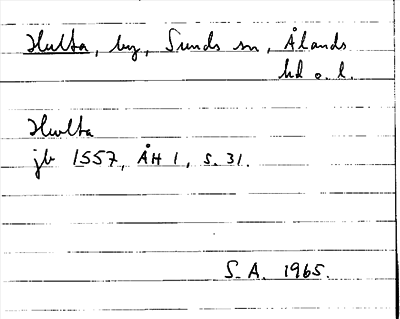 Hulta, by, Sunds sn, Ålands
hd o. l.
Hwlta
jb 1557, ÅH 1, s. 31.
S. A. 1965.